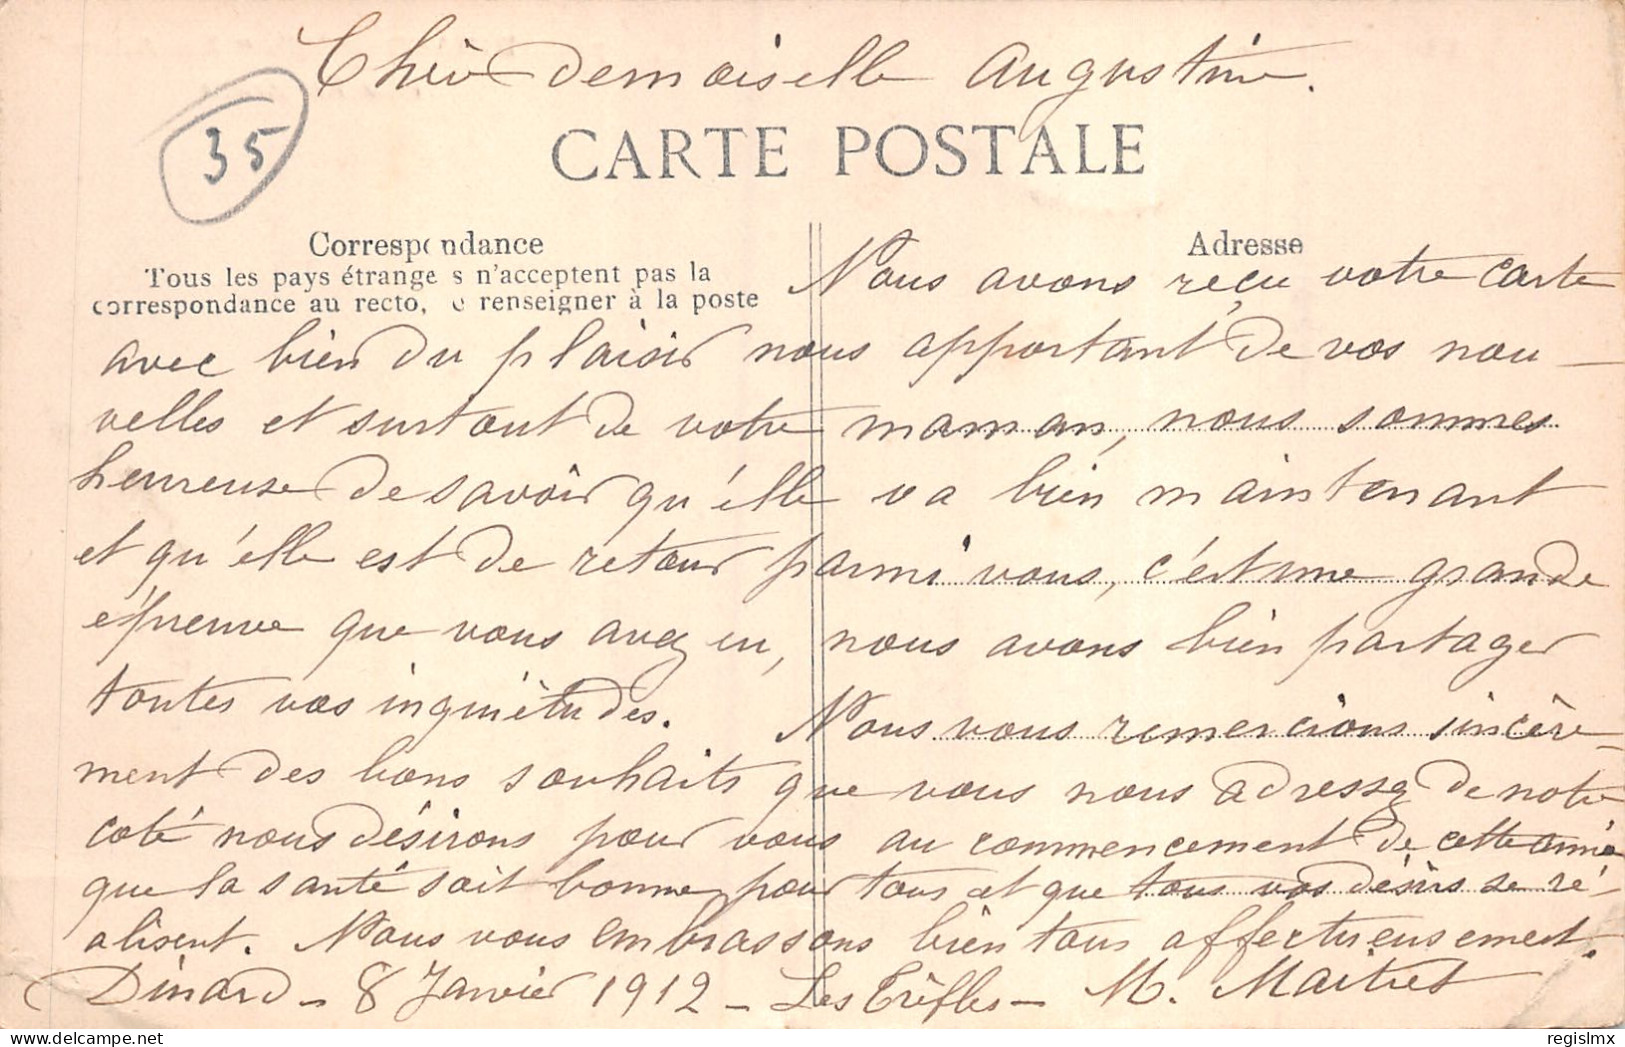 Chère demoiselle Augustine.
35
CARTE POSTALE
Correspondance
Adresse
Tous les pays étrangers n'acceptent pas la
correspondance au recto, se renseigner à la poste
Nous avons reçu votre carte
avec bien du plaisir nous apportant de vos nou-
velles et surtout de votre maman, nous sommes
heureuse de savoir qu'elle va bien maintenant
et qu'elle est de retour parmi vous, c'est une grande
épreuve que vous avez eu, nous avons bien partager
toutes vos inquiètudes. Nous vous remercions sincère-
ment des bons souhaits que vous nous adressez de notre
coté nous désirons pour vous au commencement de cette année
que la santé soit bonne pour tous et que tous vos désirs se ré-
alisent. Nous vous embrassons bien tous affectueusement.
Dinard - 8 Janvier 1912 - Les Trèfles - M. Maitret
regislmx
delcampe.net